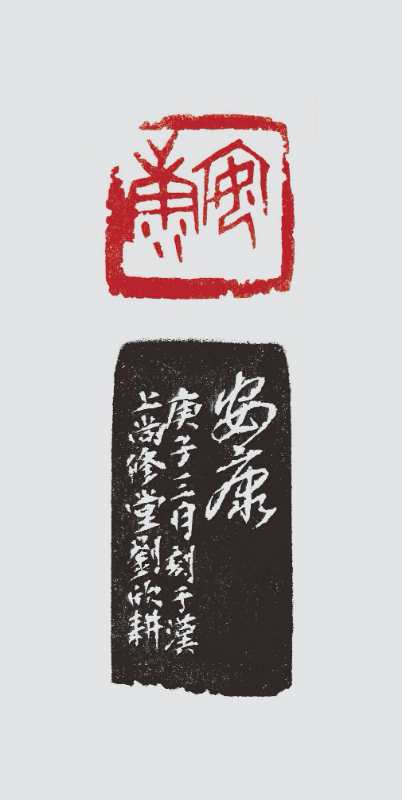 安康
安康
庚子三月刻于漢
上尚修堂劉欣耕